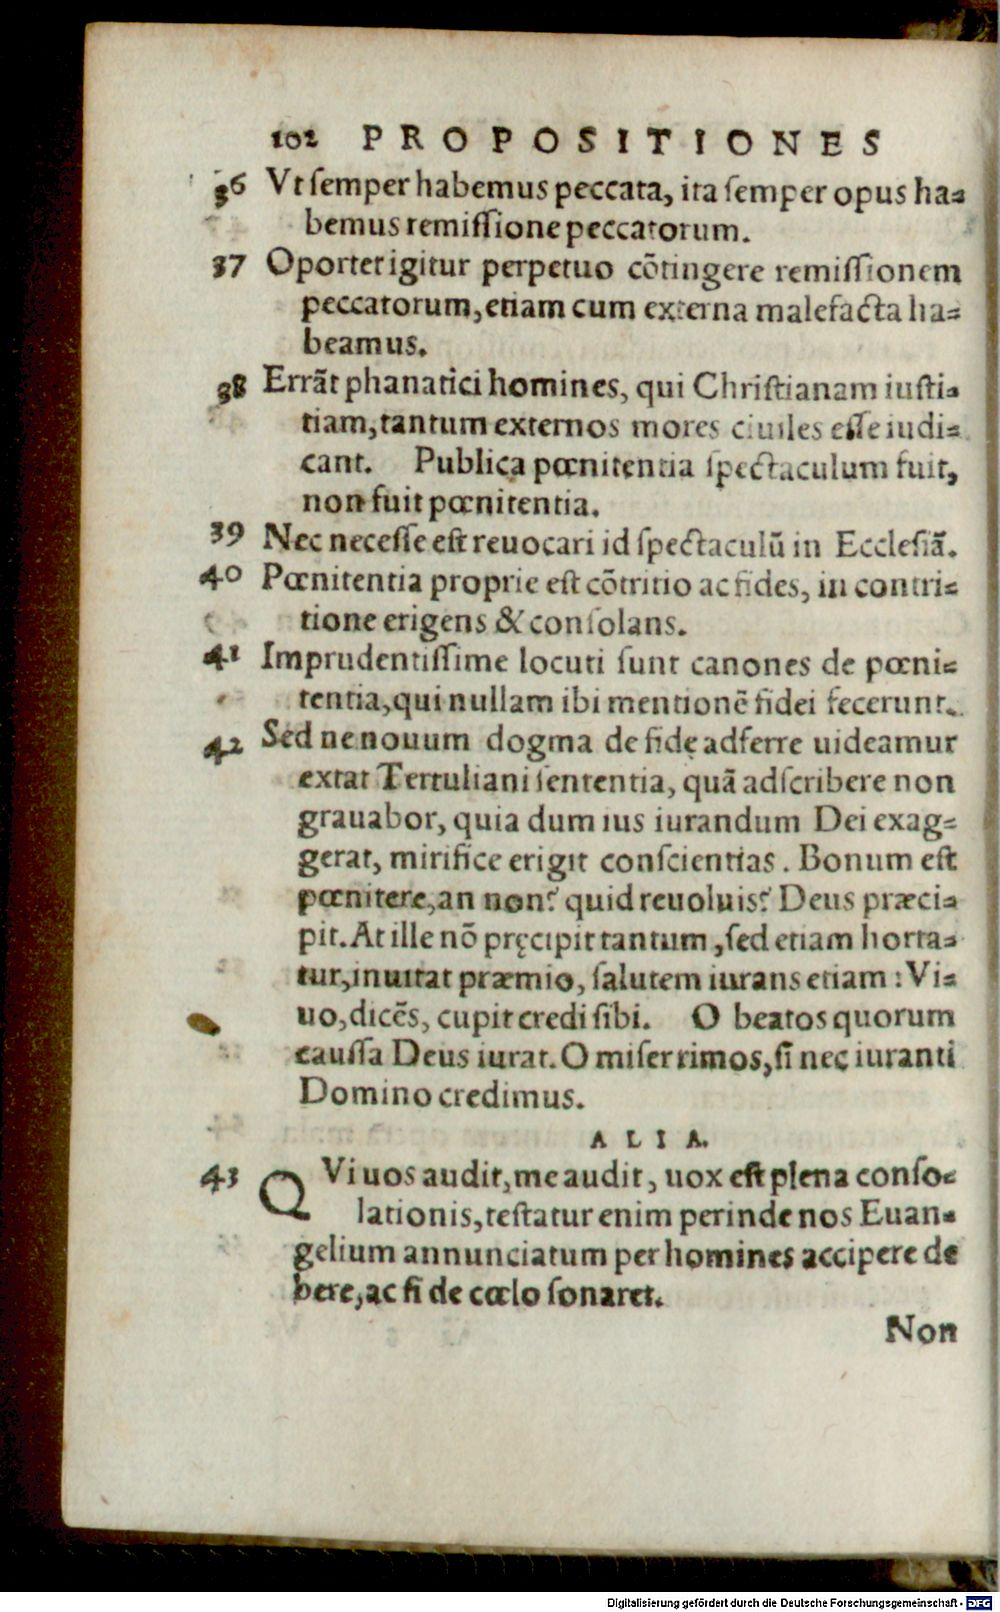 102 PROPOSITIONES
36 Vt ſemper habemus peccata, ita ſemper opus ha=
bemus remiſſione peccatorum.
37 Oportet igitur perpetuo cõtingere remiſſionem
peccatorum, etiam cum externa malefacta ha=
beamus.
38 Errãt phanatici homines, qui Chriſtianam iuſti=
tiam, tantum externos mores ciuiles eſſe iudi=
cant. Publica pœnitentia ſpectaculum fuit,
non fuit pœnitentia.
39 Nec neceſſe eſt reuocari id ſpectaculũ in Eccleſiã.
40 Pœnitentia proprie eſt cõtritio ac fides, in contri=
tione erigens & conſolans.
41 Imprudentiſſime locuti ſunt canones de pœni=
tentia, qui nullam ibi mentionẽ fidei fecerunt.
42 Sed ne nouum dogma de fide adferre uideamur
extat Tertuliani ſententia, quã adſcribere non
grauabor, quia dum ius iurandum Dei exag=
gerat, mirifice erigit conſcientias. Bonum eſt
pœnitere, an non? quid reuoluis? Deus præci=
pit. At ille nõ pręcipit tantum, ſed etiam horta=
tur, inuitat præmio, ſalutem iurans etiam: Vi=
uo, dicẽs, cupit credi ſibi. O beatos quorum
cauſſa Deus iurat. O miſerrimos, ſi nec iuranti
Domino credimus.
ALIA.
43 QVi uos audit, me audit, uox eſt plena conſo=
lationis, teſtatur enim perinde nos Euan=
gelium annunciatum per homines accipere de
bere, ac ſi de cœlo ſonaret.
Non
Digitalisierung gefördert durch die Deutsche Forschungsgemeinschaft - DFG